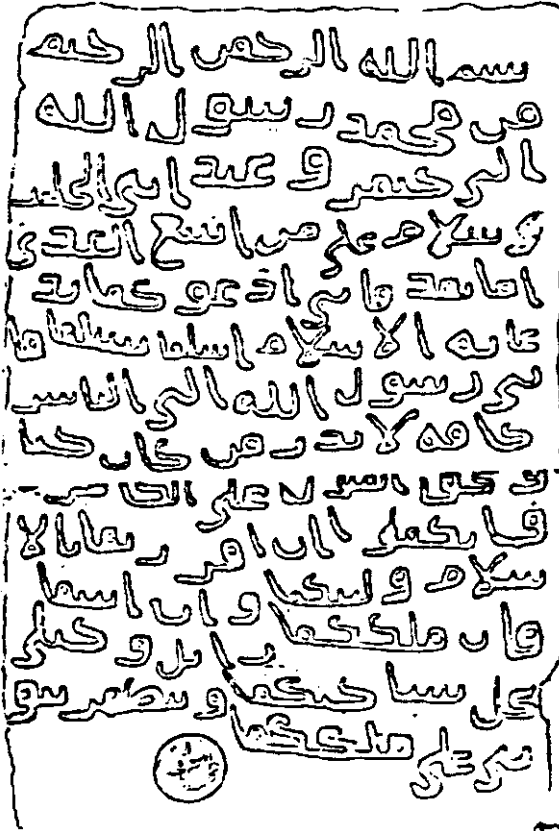 بسم الله الرحمن الرحيم
من محمد رسول الله
الى جيفر و عبد ابنى الجلند
ى سلام على من اتبع الهدى
اما بعد فانى ادعوكما بد
عايه الاسلام اسلما تسلما فا
نى رسول الله الى الناس
كافه لانذر من كان حيا
و يحق القول على الكافرين
فانكما ان اقررتما بالا
سلام وليتكما وان ابيتما
فان ملككما زايل و خيلى
تحل بساحتكما و تظهر نبو
تى على ملككما